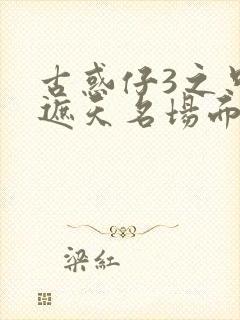 古惑仔3之只
遮天名場面
梁紅